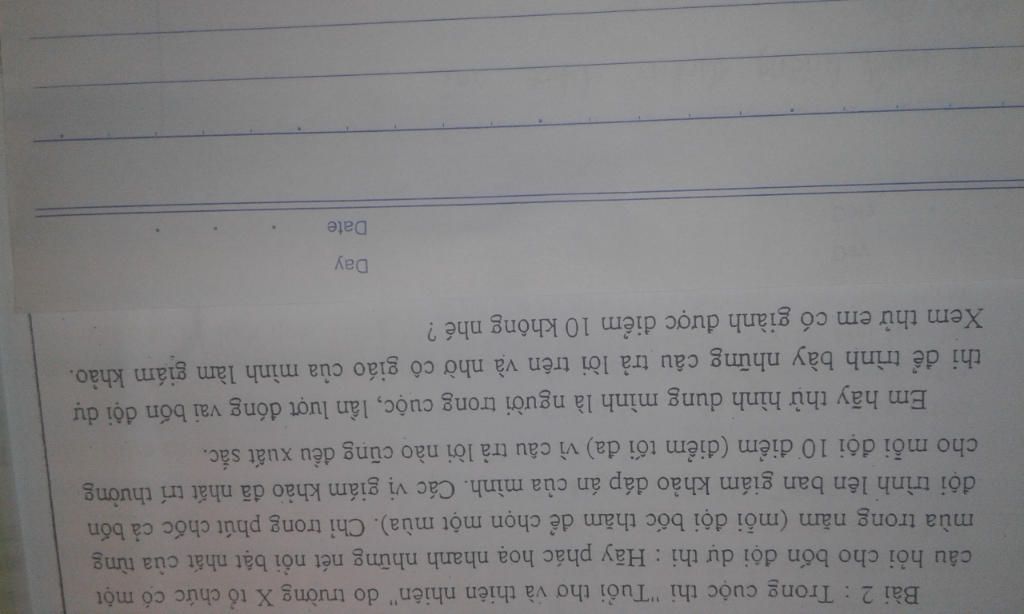 Bài 2 : Trong cuộc thi "Tuổi thơ và thiên nhiên" do trường X tổ chức có một
câu hỏi cho bốn đội dự thi : Hãy phác hoạ nhanh những nét nổi bật nhất của từng
mùa trong năm (mỗi đội bốc thăm để chọn một mùa). Chỉ trong phút chốc cả bốn
đội trình lên ban giám khảo đáp án của mình. Các vị giám khảo đã nhất trí thưởng
cho mỗi đội 10 điểm (điểm tối đa) vì câu trả lời nào cũng đều xuất sắc.
Em hãy thử hình dung mình là người trong cuộc, lần lượt đóng vai bốn đội dự
thi để trình bày những câu trả lời trên và nhờ cô giáo của mình làm giám khảo.
Xem thử em có giành được điểm 10 không nhé ?
Day
Date